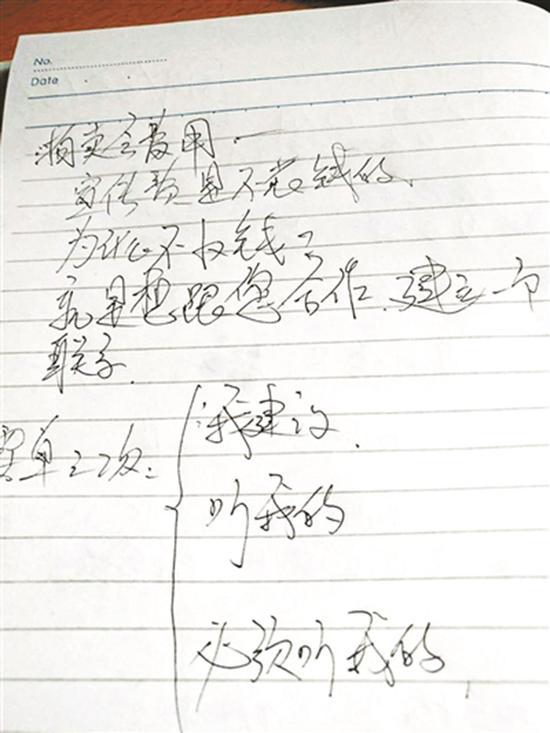 No.
Date
拍卖会费用.
宣传费是不花钱的.
为什么不收钱?
就是想跟您合作.建立一个
联系.
单三次:
我建议.
听我的
必须听我的.